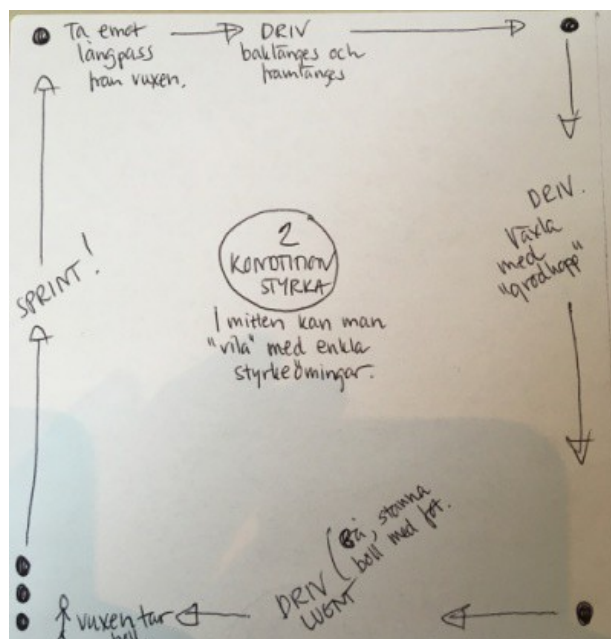 Ta emot
långpass
från vuxen.
DRIV
baklänges och
framlänges
DRIV.
Växla
med
"grodhopp"
SPRINT!
2
KONDITION
STYRKA
I mitten kan man
"vila" med enkla
styrkeövningar.
DRIV
LUGNT
(Gå, stanna
boll med fot.
vuxen tar
boll